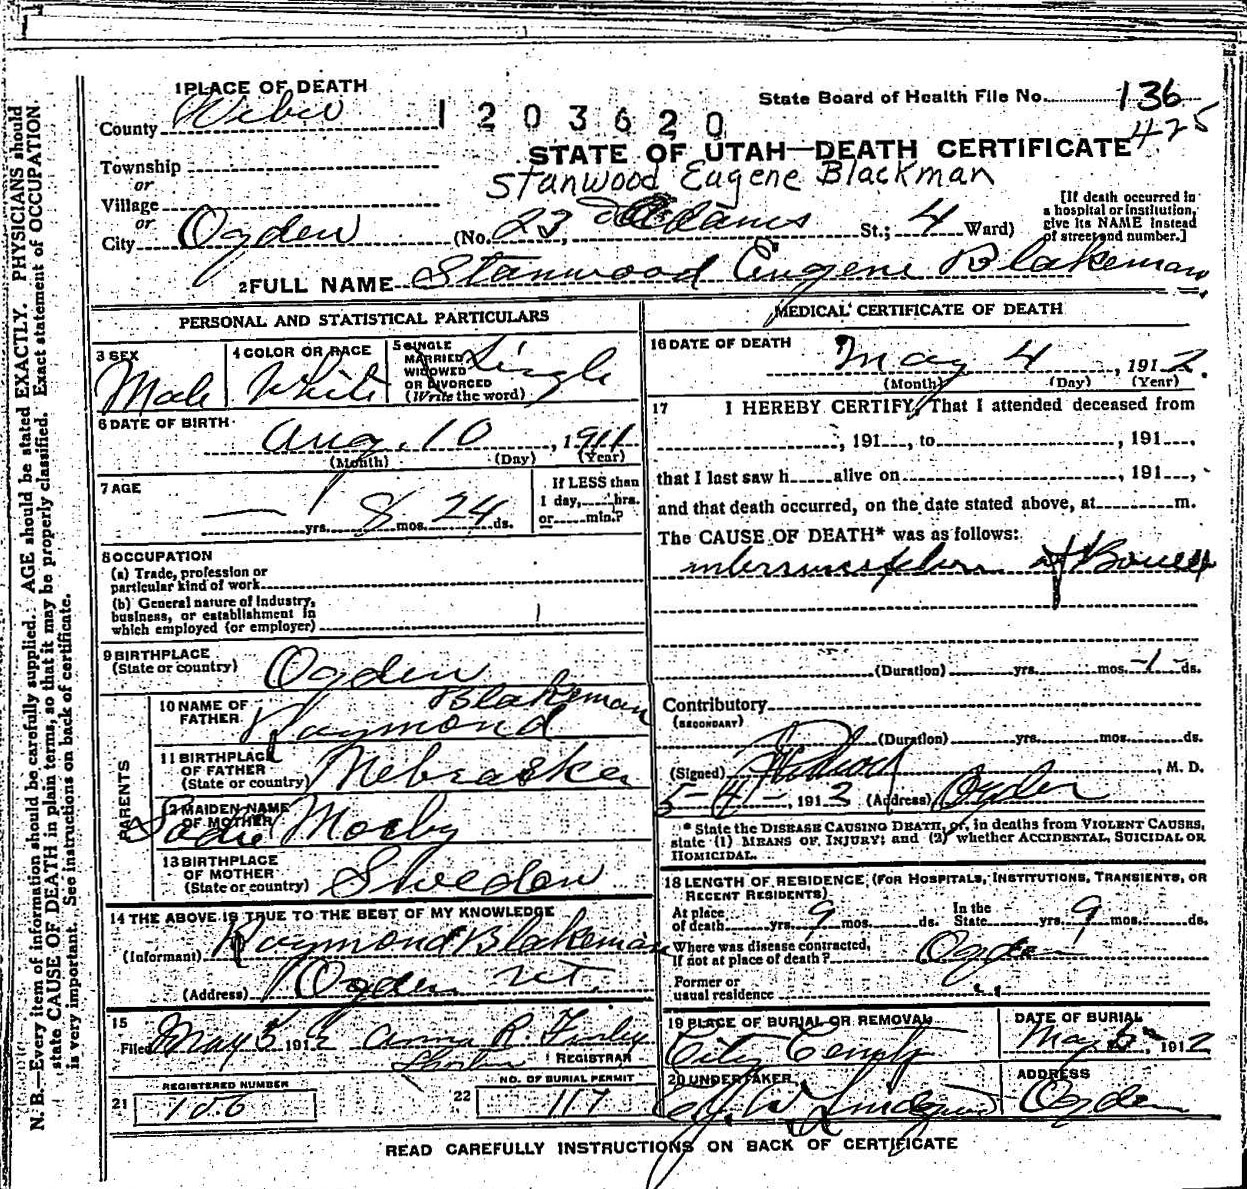 1 PLACE OF DEATH
County Weber
1203620
State Board of Health File No. 136
425
Township
or
Village
or
City Ogden
STATE OF UTAH—DEATH CERTIFICATE
Stanwood Eugene Blackman
(No. 23, Adams St.; 4 Ward)
[If death occurred in a hospital or institution, give its NAME instead of street and number.]
2 FULL NAME Stanwood Eugene Blakeman
PERSONAL AND STATISTICAL PARTICULARS
3 SEX Male
4 COLOR OR RACE White
5 SINGLE MARRIED WIDOWED OR DIVORCED (Write the word) Single
6 DATE OF BIRTH Aug. 10, 1911
(Month) (Day) (Year)
7 AGE — yrs. 8 mos. 24 ds.
If LESS than 1 day, hrs. or min.?
8 OCCUPATION
(a) Trade, profession or particular kind of work
(b) General nature of Industry, business, or establishment in which employed (or employer)
9 BIRTHPLACE (State or country) Ogden
PARENTS
10 NAME OF FATHER Raymond Blakeman
11 BIRTHPLACE OF FATHER (State or country) Nebraska
12 MAIDEN NAME OF MOTHER Sadie
13 BIRTHPLACE OF MOTHER (State or country) Sweden
14 THE ABOVE IS TRUE TO THE BEST OF MY KNOWLEDGE
(Informant) Raymond Blakeman
(Address) Ogden Ut.
15 Filed May 5 1912 Anna R.
REGISTRAR
REGISTERED NUMBER
21
NO. OF BURIAL PERMIT
22 117
MEDICAL CERTIFICATE OF DEATH
16 DATE OF DEATH May 4, 1912.
(Month) (Day) (Year)
17 I HEREBY CERTIFY, That I attended deceased from
, 191 , to , 191 ,
that I last saw h alive on , 191 ,
and that death occurred, on the date stated above, at m.
The CAUSE OF DEATH* was as follows:
intersusception of Bowel
(Duration) yrs. mos. 1 ds.
Contributory
(SECONDARY)
(Duration) yrs. mos. ds.
(Signed) , M. D.
5-4-, 1912 (Address) Ogden
* State the DISEASE CAUSING DEATH, or, in deaths from VIOLENT CAUSES, state (1) MEANS OF INJURY; and (2) whether ACCIDENTAL, SUICIDAL OR HOMICIDAL.
18 LENGTH OF RESIDENCE (FOR HOSPITALS, INSTITUTIONS, TRANSIENTS, OR RECENT RESIDENTS)
At place of death yrs. 9 mos. ds. In the State yrs. 9 mos. ds.
Where was disease contracted, if not at place of death? Ogden
Former or usual residence
19 PLACE OF BURIAL OR REMOVAL City
DATE OF BURIAL May 5, 1912
20 UNDERTAKER
ADDRESS Ogden
READ CAREFULLY INSTRUCTIONS ON BACK OF CERTIFICATE
N. B.—Every item of information should be carefully supplied. AGE should be stated EXACTLY. PHYSICIANS should
state CAUSE OF DEATH in plain terms, so that it may be properly classified. Exact statement of OCCUPATION
is very important. See instructions on back of certificate.